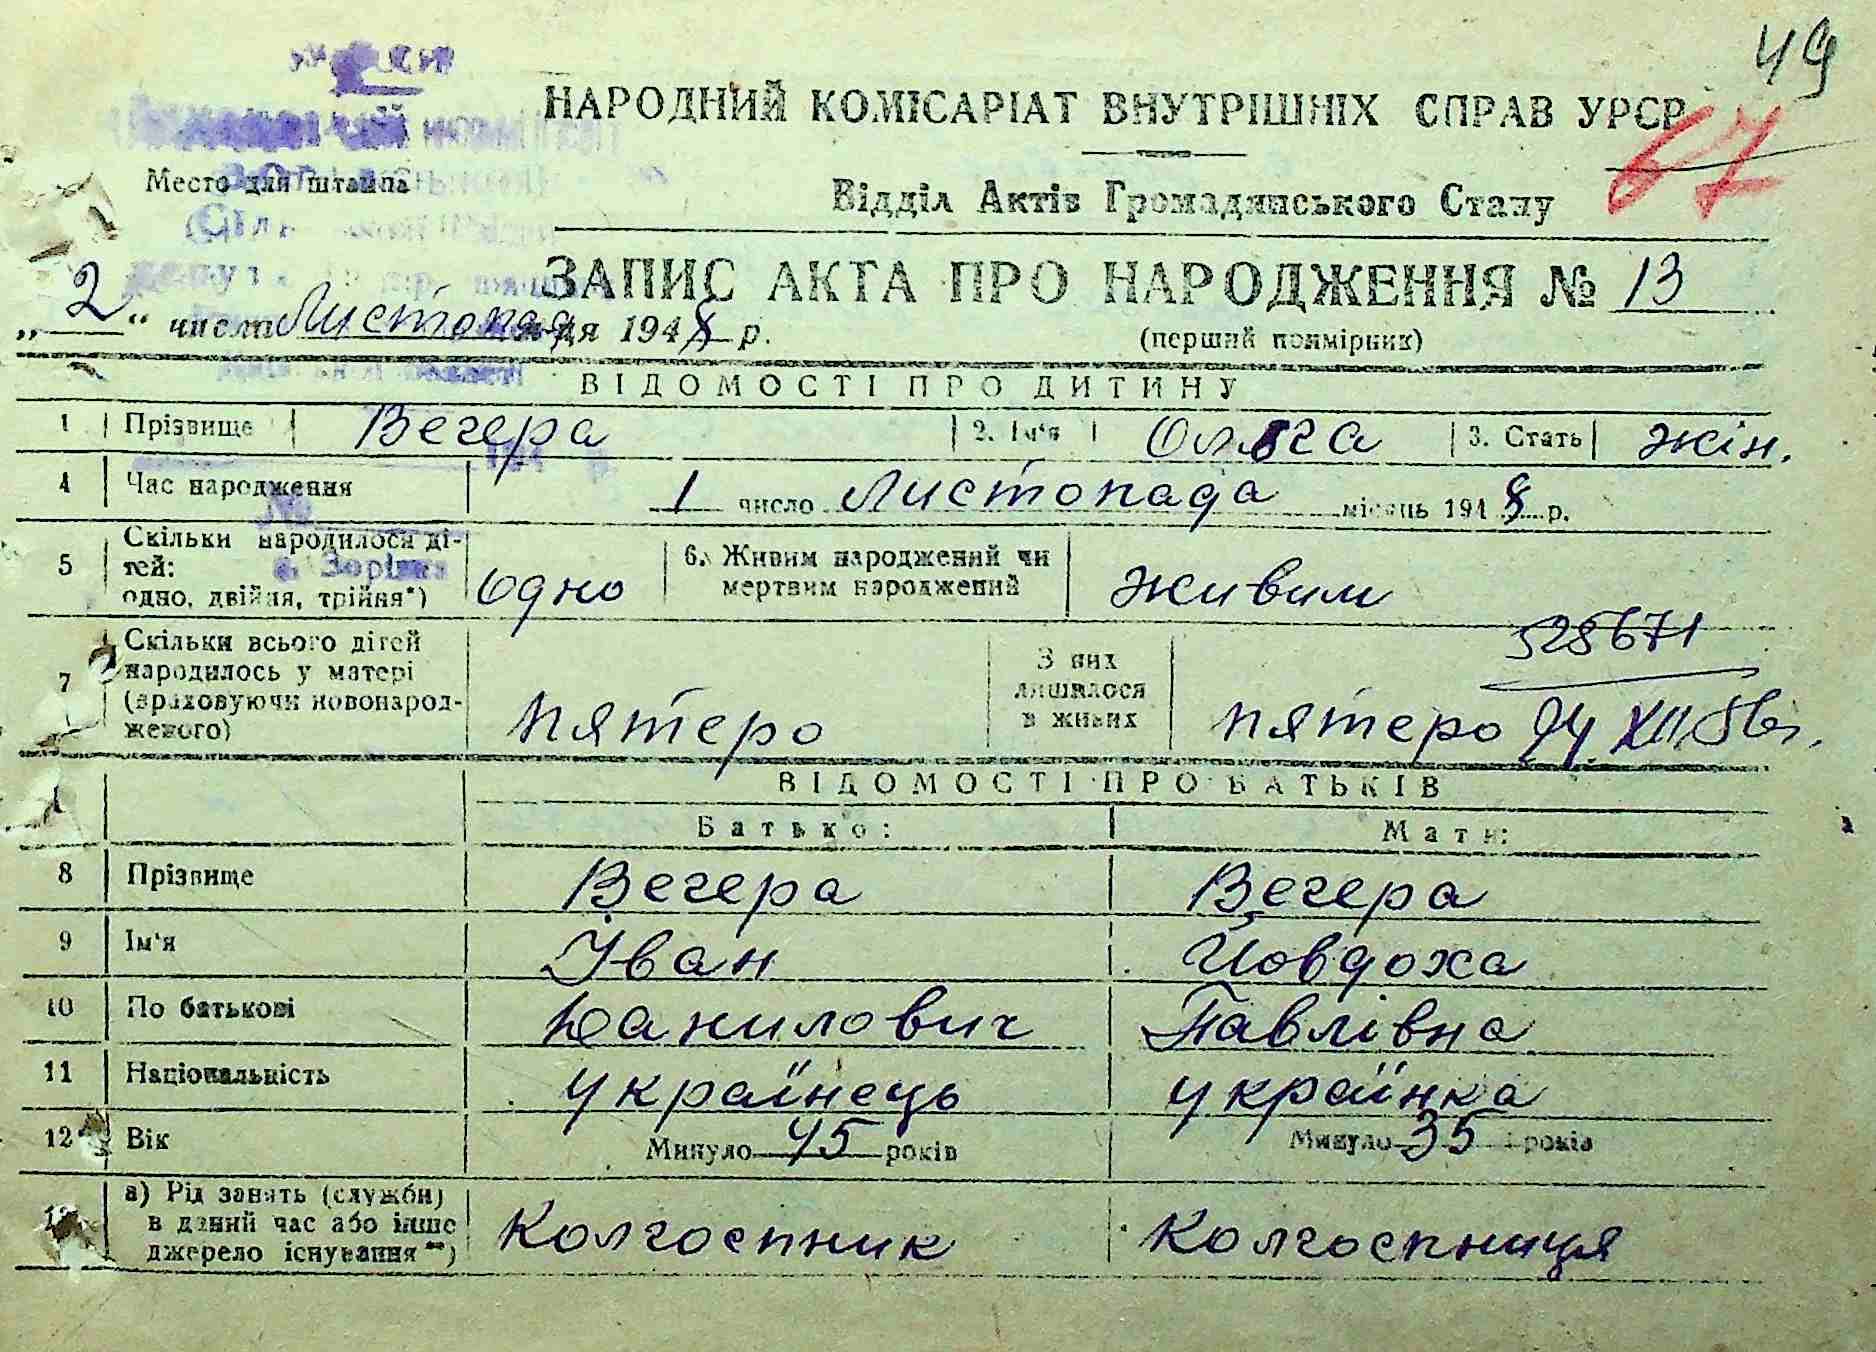 49
НАРОДНИЙ КОМІСАРІАТ ВНУТРІШНІХ СПРАВ УРСР
67
Место для штампа
Відділ Актів Громадянського Стану
ЗАПИС АКТА ПРО НАРОДЖЕННЯ № 13
„ 2 “ числа Листопада 1948 р.
(перший примірник)
ВІДОМОСТІ ПРО ДИТИНУ
1 Прізвище Вечера 2. Ім'я Ольга 3. Стать жін.
4 Час народження 1 число Листопада місяць 1948 р.
5 Скільки народилося дітей: одно, двійня, трійня*) одно 6. Живим народжений чи мертвим народжений живим
с. Зорівка
528671
7 Скільки всього дітей народилось у матері (враховуючи новонародженого) пятеро З них лишилося в живих пятеро 24.XII.56г.
ВІДОМОСТІ ПРО БАТЬКІВ
Батько: Мати:
8 Прізвище Вечера Вечера
9 Ім'я Іван Йовдоха
10 По батькові Данилович Павлівна
11 Національність українець українка
12 Вік Минуло 45 років Минуло 35 років
13 а) Рід занять (служби) в даний час або інше джерело існування**) Колгоспник Колгоспниця